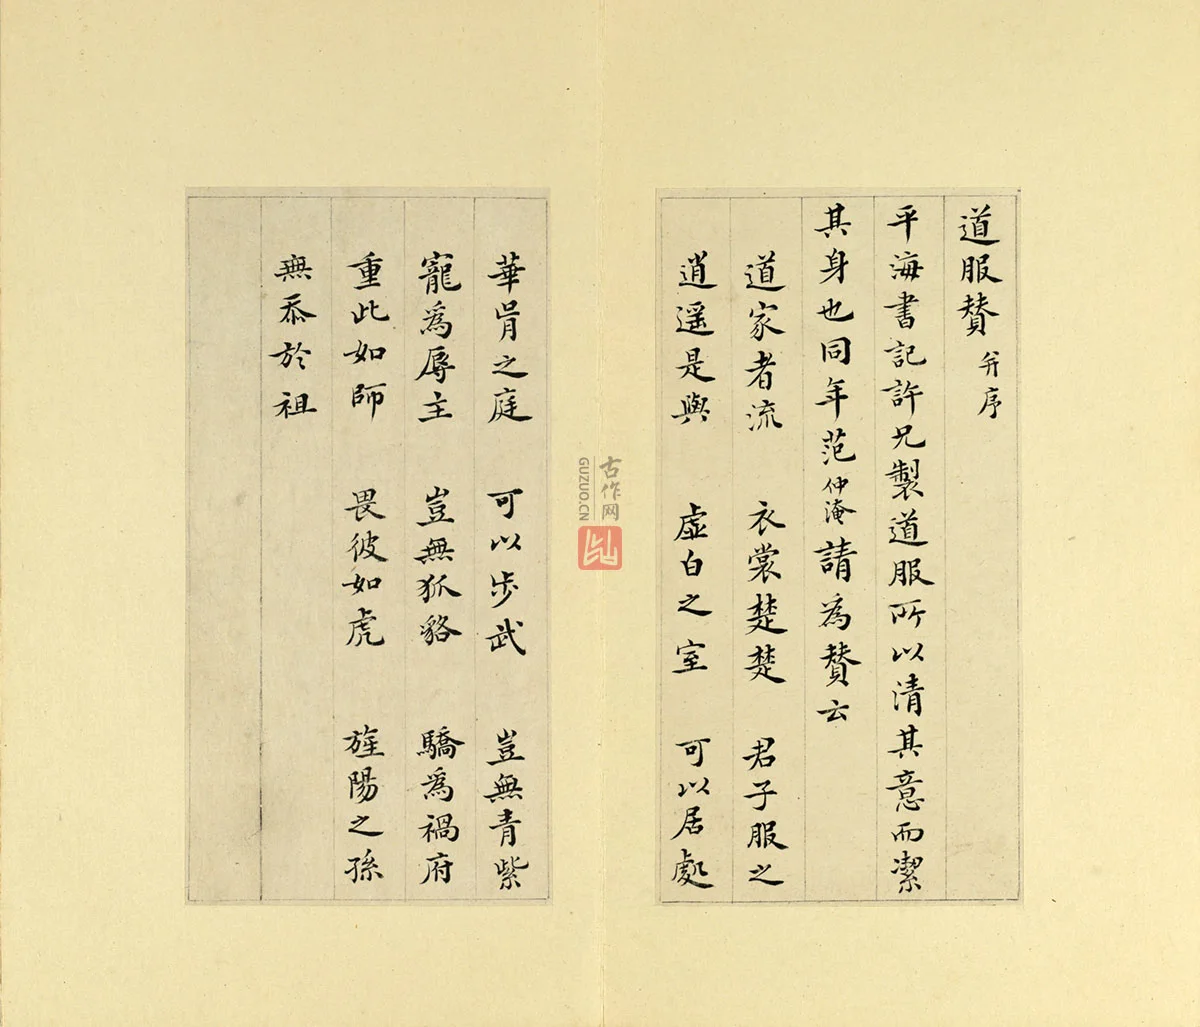 道服賛 并序
平海書記許兄製道服所以清其意而潔
其身也同年范仲淹請為賛云
道家者流 衣裳楚楚 君子服之
逍遥是與 虛白之室 可以居處
華胥之庭 可以步武 豈無青紫
寵為辱主 豈無狐貉 驕為禍府
重此如師 畏彼如虎 旌陽之孫
無忝於祖
古作网
GUZUO.CN